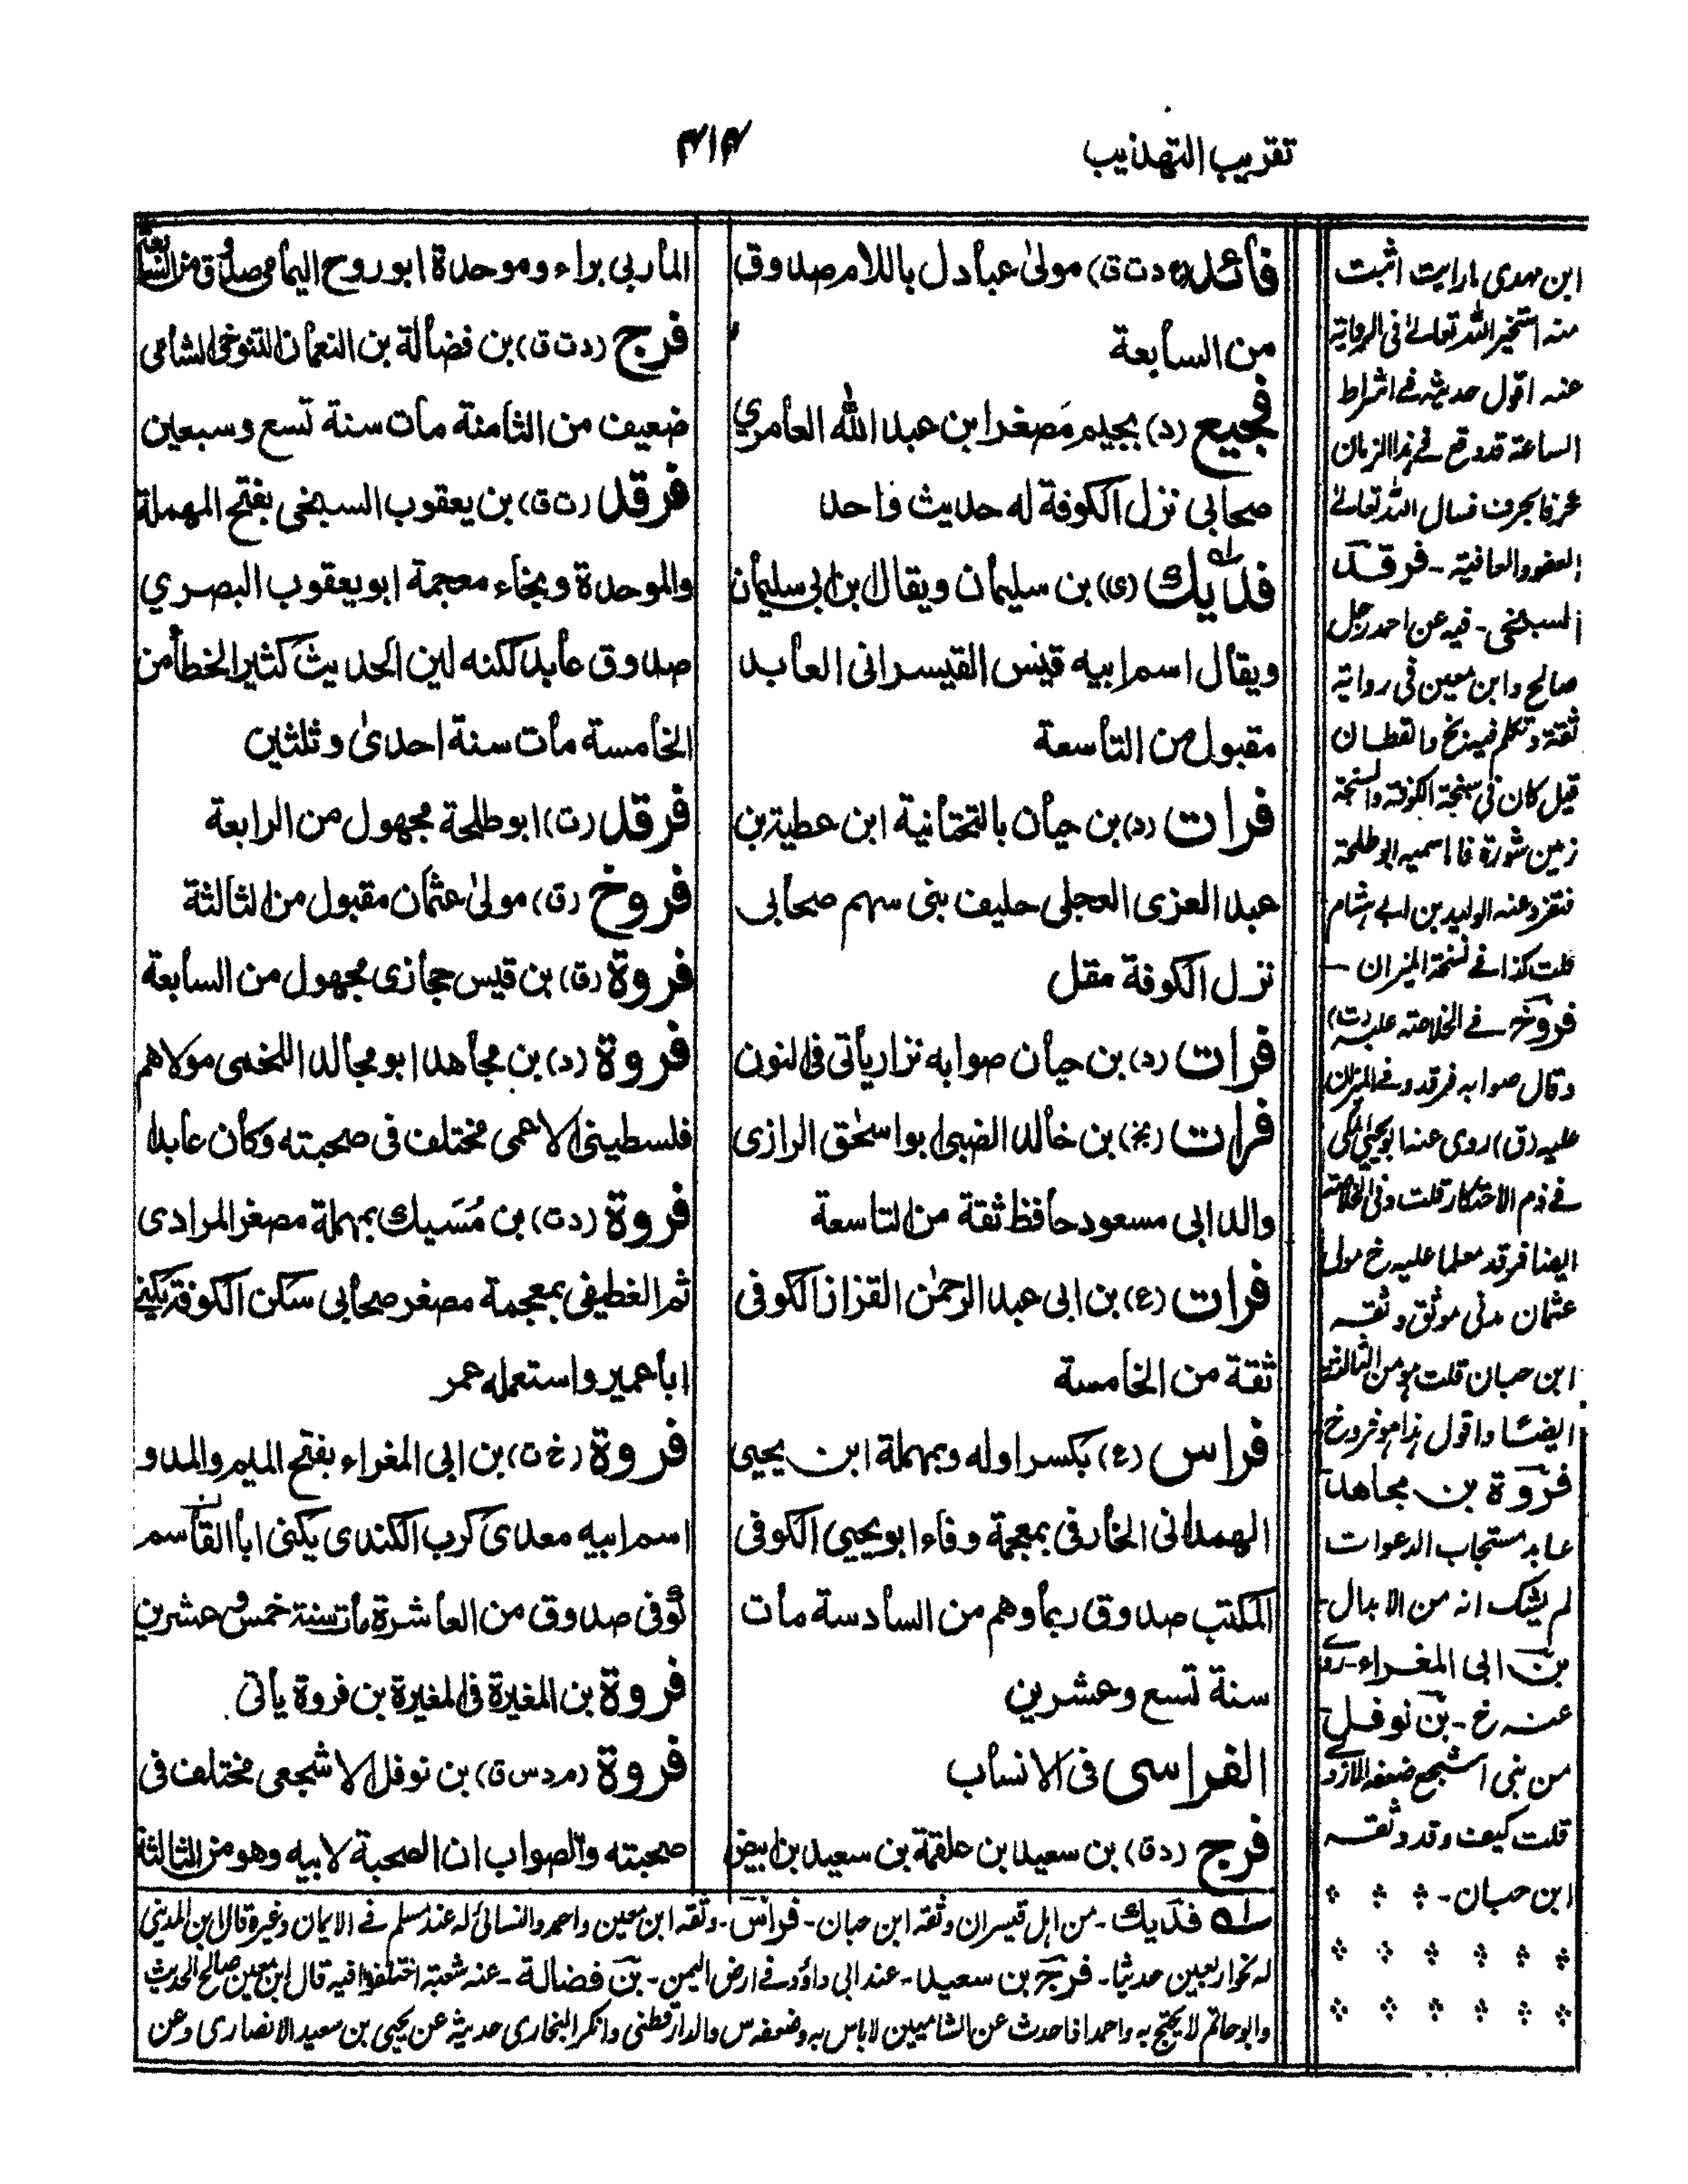 تقریب التهذیب
۴۱۴
فائد (د ت ق) مولیٰ عبادل باللام صدوق
من السابعة
فجیع (د) بجیم مصغرا ابن عبد الله العامري
صحابی نزل الکوفة له حدیث واحد
فدیك (ی) بن سلیمان ویقال ابن ابی سلیمان
ویقال اسم ابیه قیس القیسرانی العابد
مقبول من التاسعة
فرات (د) بن حیان بالتحتانیة ابن عطیة بن
عبد العزی العجلی حلیف بنی سهم صحابی
نزل الکوفة مقل
فرات (د) بن حیان صوابه نزار یأتی فی النون
فرات (بخ) بن خالد الضبی ابو اسحٰق الرازی
والد ابی مسعود حافظ ثقة من التاسعة
فرات (ع) بن ابی عبد الرحمٰن القزاز الکوفی
ثقة من الخامسة
فراس (ع) بکسر اوله وبمهملة ابن یحیی
الهمدانی الخارفی بمعجمة وفاء ابو یحیی الکوفی
المکتب صدوق ربما وهم من السادسة مات
سنة تسع وعشرین
الفراسی فی الانساب
فرج (د ق) بن سعید بن علقمة بن سعید بن ابیض
المأربی براء وموحدة ابو روح الیمامی صدوق من السابعة
فرج (د ت ق) بن فضالة بن النعمان التنوخی الشامی
ضعیف من الثامنة مات سنة تسع وسبعین
فرقد (ت ق) بن یعقوب السبخی بفتح المهملة
والموحدة وبخاء معجمة ابو یعقوب البصري
صدوق عابد لکنه لین الحدیث کثیر الخطأ من
الخامسة مات سنة احدیٰ وثلثین
فرقد (ت) ابو طلحة مجهول من الرابعة
فروخ (ق) مولیٰ عثمان مقبول من الثالثة
فروة (ق) بن قیس حجازی مجهول من السابعة
فروة (د) بن مجاهد ابو مجالد اللخمی مولاهم
فلسطینی الاعمی مختلف فی صحبته وکان عابدا
فروة (د ت) بن مُسَیك بمهملة مصغر المرادی
ثم الغطیفی بمعجمة مصغر صحابی سکن الکوفة یکنی
ابا عمیر واستعمله عمر
فروة (خ ت) بن ابی المغراء بفتح المیم والمد و
اسم ابیه معدی کرب الکندی یکنی ابا القاسم
کوفی صدوق من العاشرة مات سنة خمس وعشرین
فروة بن المغیرة فی المغیرة بن فروة یأتی
فروة (م د س ق) بن نوفل الاشجعی مختلف فی
صحبته والصواب ان الصحبة لابیه وهو من الثالثة
ابن مهدی ما رایت اثبت
منه استخیر الله تعالیٰ فی الروایة
عنه اقول حدیثه فی اشراط
الساعة قد وقع فی هذا الزمان
حرفا بحرف فسال الله تعالیٰ
العفو والعافیة - فرقد
السبخی - فیه عن احمد رجل
صالح وابن معین فی روایة
ثقة وتکلم فیه خ والقطان
قیل کان فی سبخة الکوفة والسبخة
زمین شورة فاما سمیه ابو طلحة
فتفرد عنه الولید بن ابی هشام
قلت کذا فی نسخة المیزان -
فروخ - فی الخلاصة علیه (ت)
وقال صوابه فرقد وفی المیزان
علیه (ق) روی عنه ابو یحیی المکی
فی ذم الاحتکار قلت وفی الخلاصة
ایضا فرقد معلما علیه خ مولی
عثمان مدنی موثق وثقه
ابن حبان قلت هو من الثالثة
ایضا واقول هذا هو فروخ
فروة بن مجاهد
عابد مستجاب الدعوات
لم یشک انه من الابدال -
بن ابی المغراء - روی
عنه خ - بن نوفل
من بنی اشجع ضعفه الازدی
قلت کیف وقد وثقه
ابن حبان -
له فدیك - من اهل قیسران وثقه ابن حبان - فراس - وثقه ابن معین واحمد والنسائی له عند مسلم فی الایمان وغیره قال ابن المدینی
له نحو اربعین حدیثا - فرج بن سعید - عند ابی داؤد فی ارض الیمن - بن فضالة - عنه شعبة اختلفوا فیه قال ابن معین صالح الحدیث
وابو حاتم لا یحتج به واحمد اذا حدث عن الشامیین لا باس به وضعفه س والدارقطنی وانکر البخاری حدیثه عن یحیی بن سعید الانصاری وعن